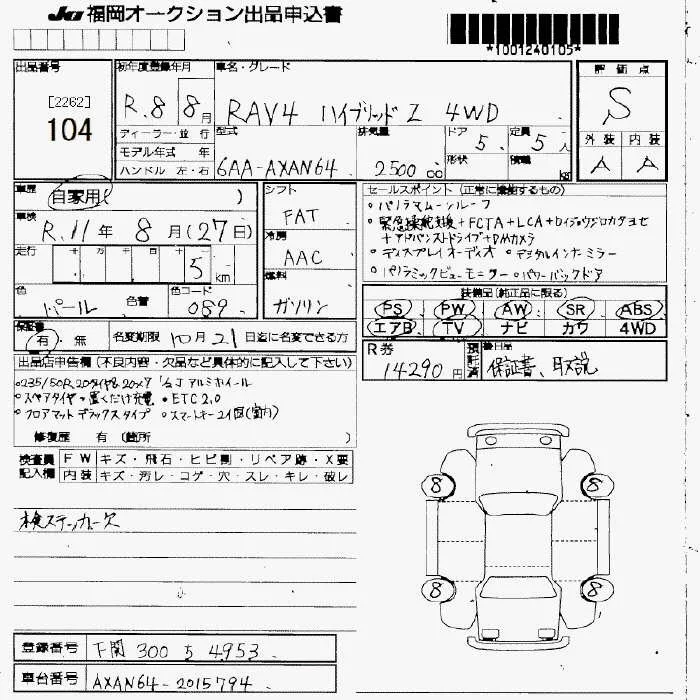 JU 福岡オークション出品申込書
*1001240105*
出品番号
[2262]
104
初年度登録年月
R.8 8月
車名・グレード
RAV4 ハイブリッド Z 4WD
評価点
S
外装 内装
A A
ディーラー・並 行
モデル年式 年
ハンドル 左・右
型式
6AA-AXAN64
排気量
2500 cc
ドア 5.
定員 5人
形状
積載 kg
車歴
自家用( )
車検
R.11年 8月(27日)
走行
十 万 千 百 十
5 km
色
パール
色替
色コード
089
シフト
FAT
冷房
AAC
燃料
ガソリン
セールスポイント (正常に機能するもの)
○パノラマムーンルーフ
○緊急操舵支援+FCTA+LCA+
+アドバンストドライブ+DMカメラ
○ディスプレイオーディオ ○デジタルインナーミラー
○パノラミックビューモニター ○パワーバックドア
装備品(純正品に限る)
PS PW AW SR ABS
エアB TV ナビ カワ 4WD
保証書
有・無
名変期限 10月21日迄に名変できる方
R券
14290円
預託済
後日品
保証書、取説
出品店申告欄(不良内容・欠品など具体的に記入して下さい)
○235/50R20タイヤ& アルミホイール
○スペアタイヤ ○置くだけ充電 ○ETC2.0
○フロアマット デラックスタイプ ○スマートキー2個(室内)
修復歴 有 (箇所 )
検査員記入欄
FW キズ・飛石・ヒビ割・リペア跡・X要
内装 キズ・汚レ・コゲ・穴・スレ・キレ・破レ
8 8
8 8
検ステッカー欠
登録番号 下関 300 ち 4953
車台番号 AXAN64-2015794